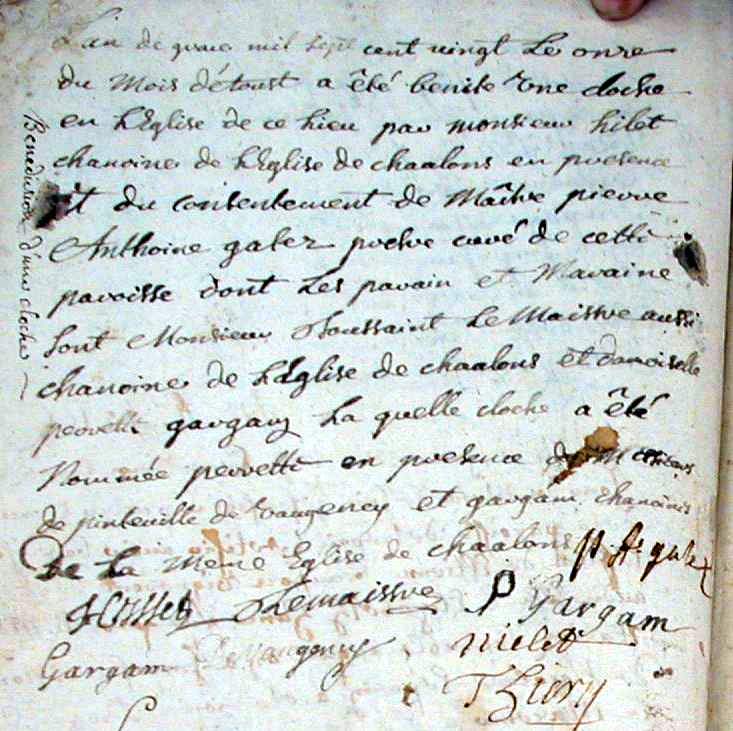 Benediction d'une cloche
L'an de grace mil sept cent vingt Le onze
du Mois d'Aoust a êté benite vne cloche
en L'Eglise de ce Lieu par monsieur hilet
chanoine de L'Eglise de chaalons en presence
et du consentement de Maître pierre
Anthoine galez prestre curé de cette
paroisse dont Les parain et Maraine
sont Monsieur Toussaint Le Maistre aussi
chanoine de L'Eglise de chaalons et damoiselle
perrette gargam La quelle cloche a êté
Nommée perrette en presence de Messieurs
de pinteville de Vaugency et gargam chanoines
De La Meme Eglise de chaalons p. A. galez
Lemaistre P Gargam
Gargam De Vaugency
Thiery